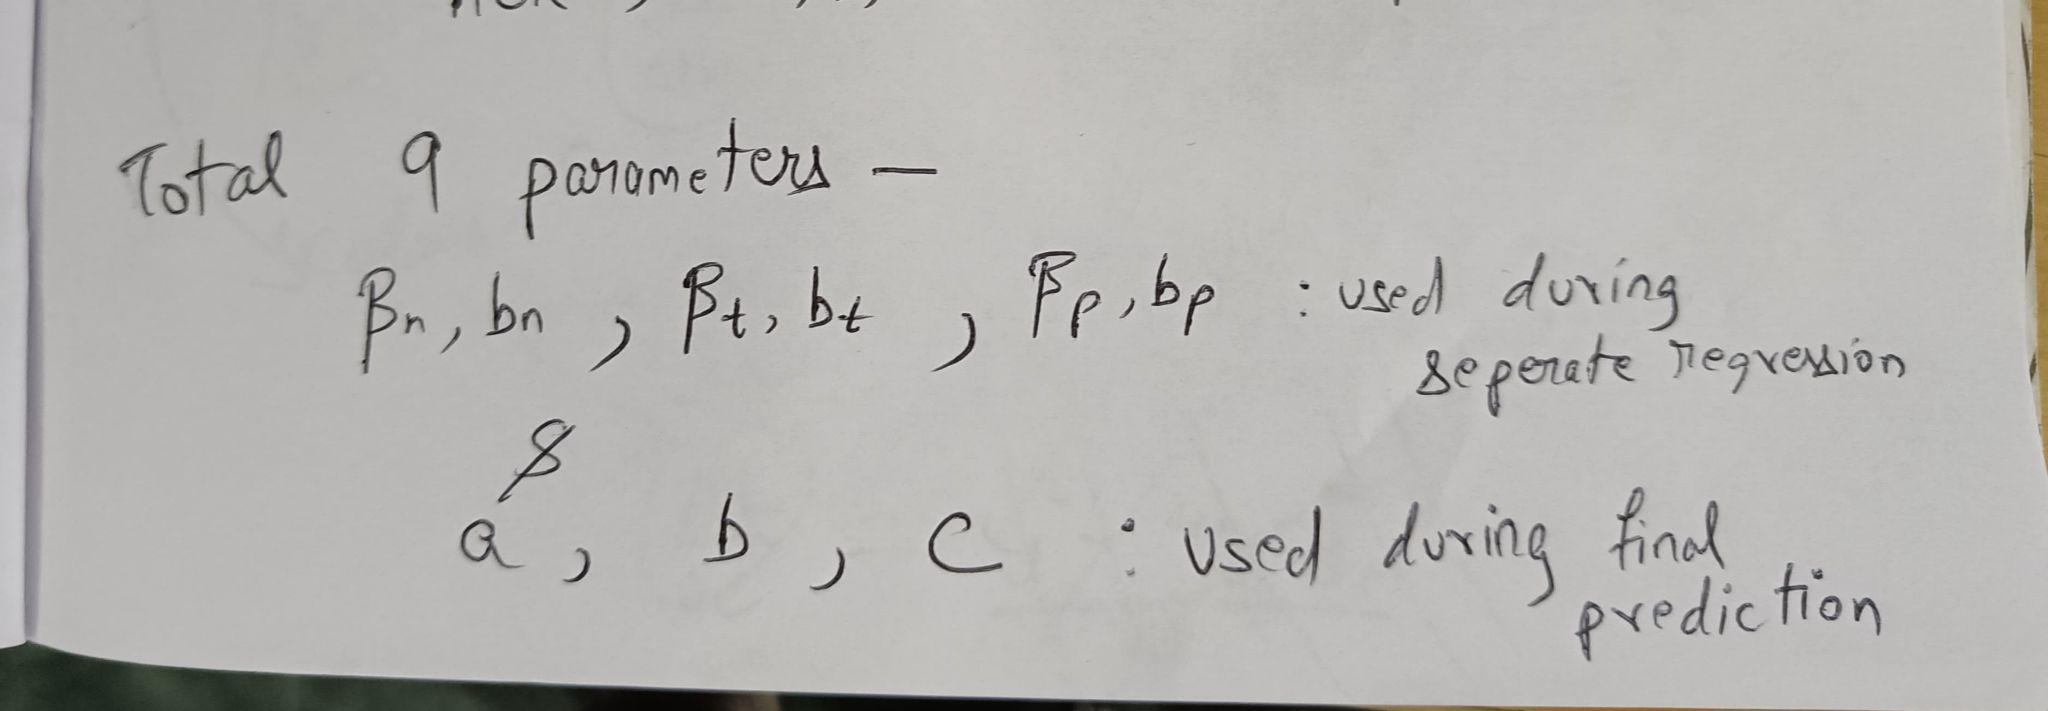 Total 9 parameters —
βn, bn , βt, bt , βp, bp : used during
seperate regression
a, b, c : used during final
prediction